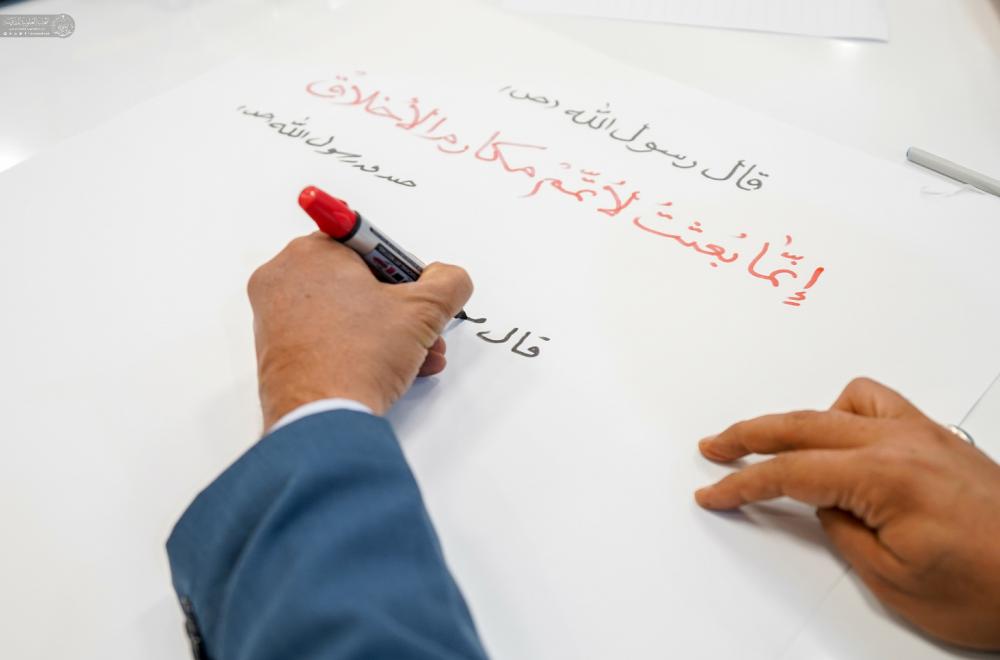 قال رسول الله (ص)
إِنَّمَا بُعثتُ لأُتَمِّمَ مكارم الأخلاق
صدق رسول الله (ص)
قال